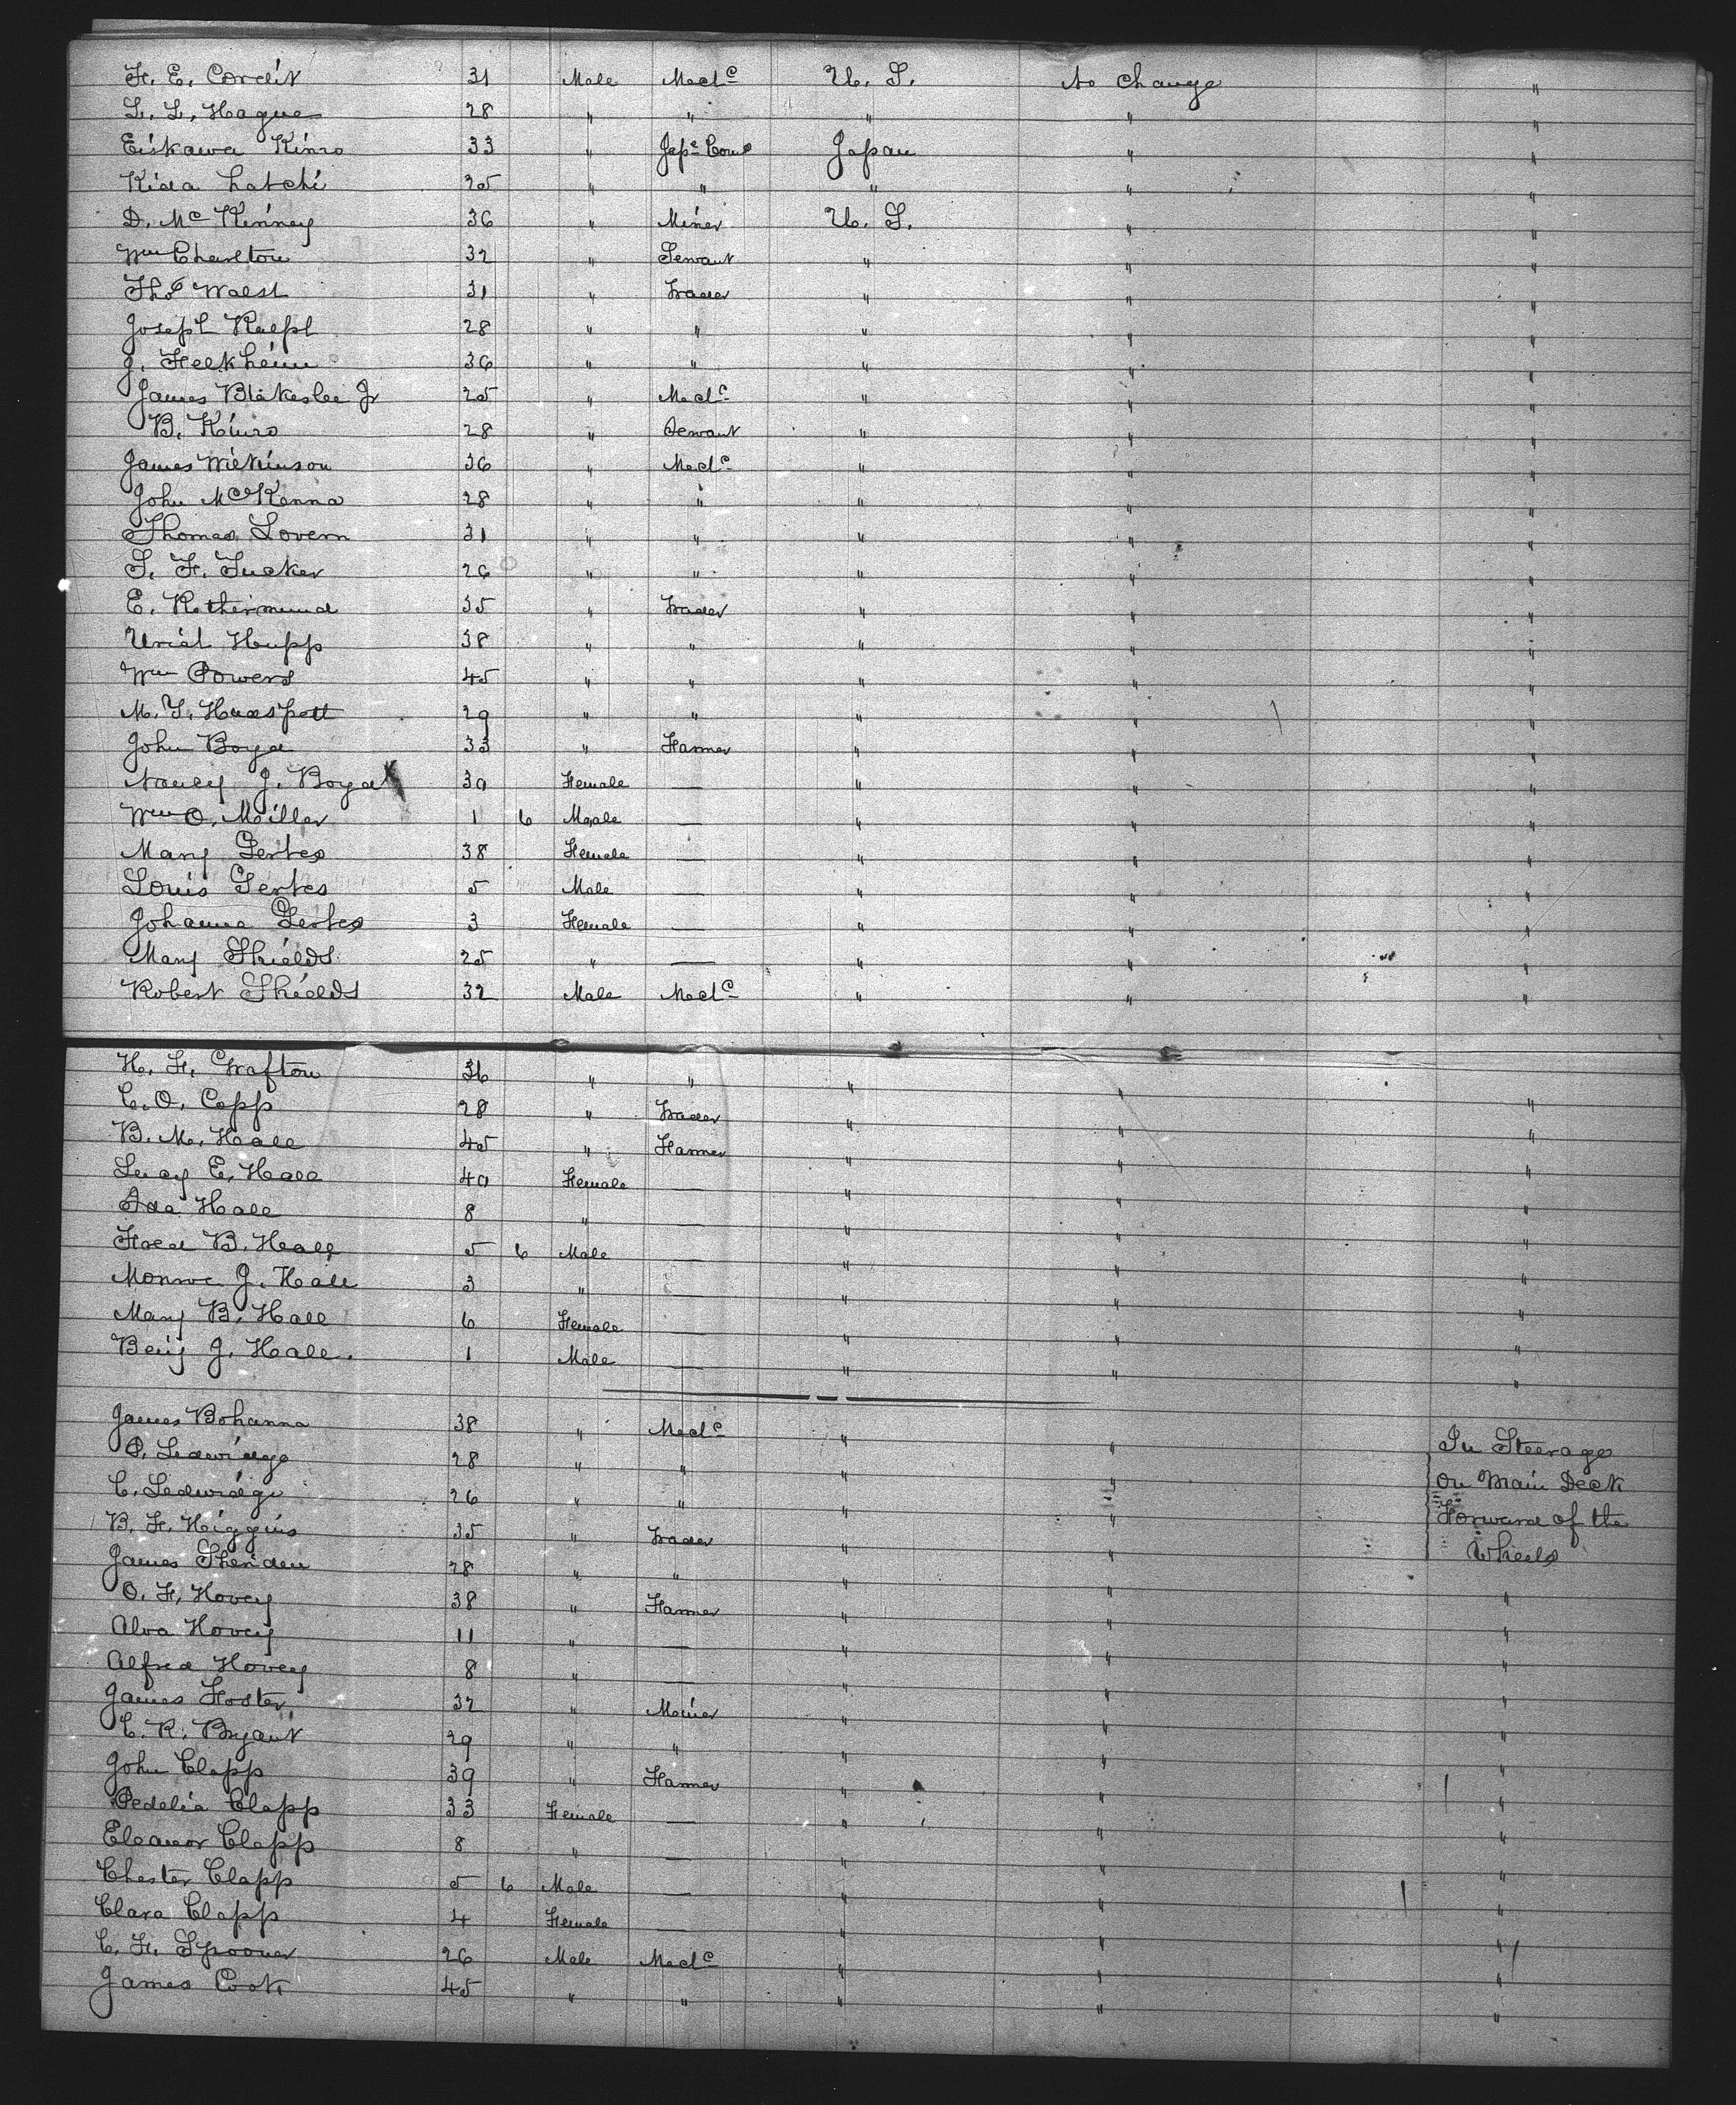 F. E. Cordit 31 Male Mechc U. S. No change "
L. L. Hague 28 " " " " "
Eiskawa Kinzo 33 " Japs Comr Japan " "
Kida Latchi 25 " " " " "
D. Mc Kinney 36 " Miner U. S. " "
Wm Charlton 32 " Servant " " "
Thos Walsh 31 " Trader " " "
Joseph Ralph 28 " " " " "
J. Feekheim 36 " " " " "
James Blakeslee Jr 25 " Mechc " " "
B. Kinzo 28 " Servant " " "
James Wilkinson 36 " Mechc " " "
John McKenna 28 " " " " "
Thomas Lovern 31 " " " " "
S. F. Tucker 26 " " " " "
E. Rothermund 35 " Trader " " "
Uriah Hupp 38 " " " " "
Wm Powers 45 " " " " "
M. Y. Huxspott 29 " " " " "
John Boyd 33 " Farmer " " "
Nancy J. Boyd 30 Female — " " "
Wm O. Miller 1 6 Male — " " "
Mary Gertes 38 Female — " " "
Louis Gertes 5 Male — " " "
Johanna Gertes 3 Female — " " "
Mary Shields 25 " — " " "
Robert Shields 32 Male Mechc " " "
H. F. Grafton 36 " " " " "
C. O. Capp 28 " Trader " " "
B. M. Hall 45 " Farmer " " "
Lucy E. Hall 40 Female — " " "
Ida Hall 8 " — " " "
Fred B. Hall 5 6 Male — " " "
Monroe J. Hall 3 " — " " "
Mary B. Hall 6 Female — " " "
Benj J. Hall. 1 Male — " " "
James Bohanna 38 " Mechc " " In Steerage
P. Ledwidge 28 " " " " on Main Deck
C. Ledwidge 26 " " " " Forward of the
B. F. Higgins 35 " Trader " " Wheels
James Sheridan 28 " " " " "
O. F. Hovey 38 " Farmer " " "
Alva Hovey 11 " — " " "
Alfred Hovey 8 " — " " "
James Foster 32 " Miner " " "
C. R. Bryant 29 " " " " "
John Clapp 39 " Farmer " " "
Pedelia Clapp 33 Female — " " "
Eleanor Clapp 8 " — " " "
Chester Clapp 5 6 Male — " " "
Clara Clapp 4 Female — " " "
C. F. Spooner 26 Male Mechc " " "
James Cook 45 " " " " "